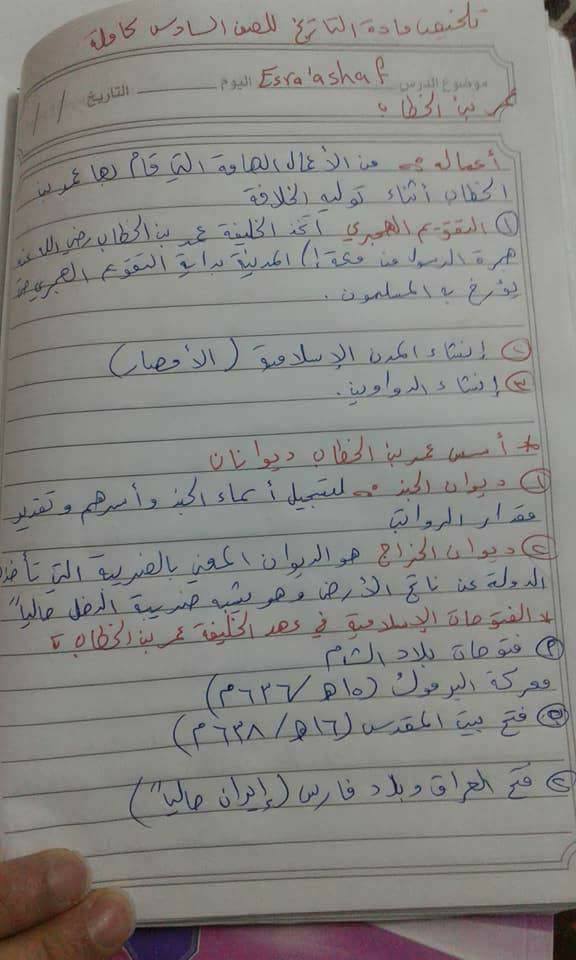 تلخيص مادة التاريخ للصف السادس كاملة
موضوع الدرس Esra'ashaf اليوم التاريخ / /
عمر بن الخطاب :
أعماله :- من الأعمال الهامة التي قام بها عمر بن
الخطاب أثناء توليه الخلافة
① التقويم الهجري اتخذ الخليفة عمر بن الخطاب رضي الله عنه
هجرة الرسول من مكة إلى المدينة بداية التقويم الهجري
يؤرخ به المسلمون.
② إنشاء المدن الإسلامية (الأمصار)
③ إنشاء الدواوين.
* أسس عمر بن الخطاب ديوانان
① ديوان الجند :- لتسجيل أسماء الجند وأسرهم وتقدير
مقدار الرواتب
② ديوان الخراج هو الديوان المعني بالضريبة التي تأخذ
الدولة عن ناتج الأرض وهو يشبه ضريبة الدخل حالياً
* الفتوحات الإسلامية في عهد الخليفة عمر بن الخطاب :
فتوحات بلاد الشام
معركة اليرموك (١٥ه / ٦٣٦م)
فتح بيت المقدس (١٦ه / ٦٣٨م)
② فتح العراق وبلاد فارس (إيران حالياً)